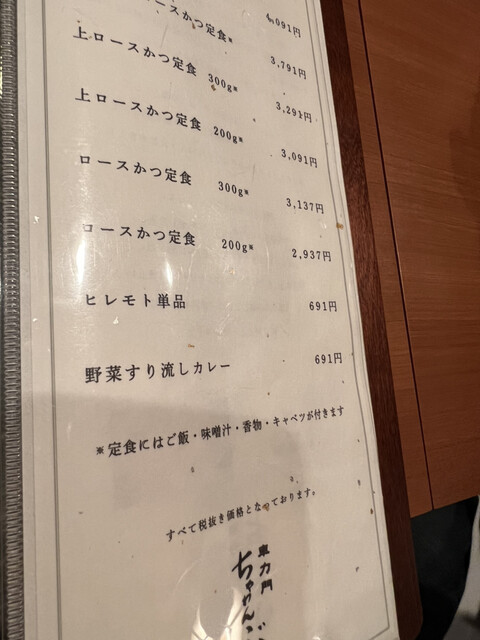 ,091円
ロースかつ定食※ 3,791円
上ロースかつ定食 300g※ 3,291円
上ロースかつ定食 200g※ 3,091円
ロースかつ定食 300g※ 3,137円
ロースかつ定食 200g※ 2,937円
ヒレモト単品 691円
野菜すり流しカレー 691円
※定食にはご飯・味噌汁・香物・キャベツが付きます
すべて税抜き価格となっております。